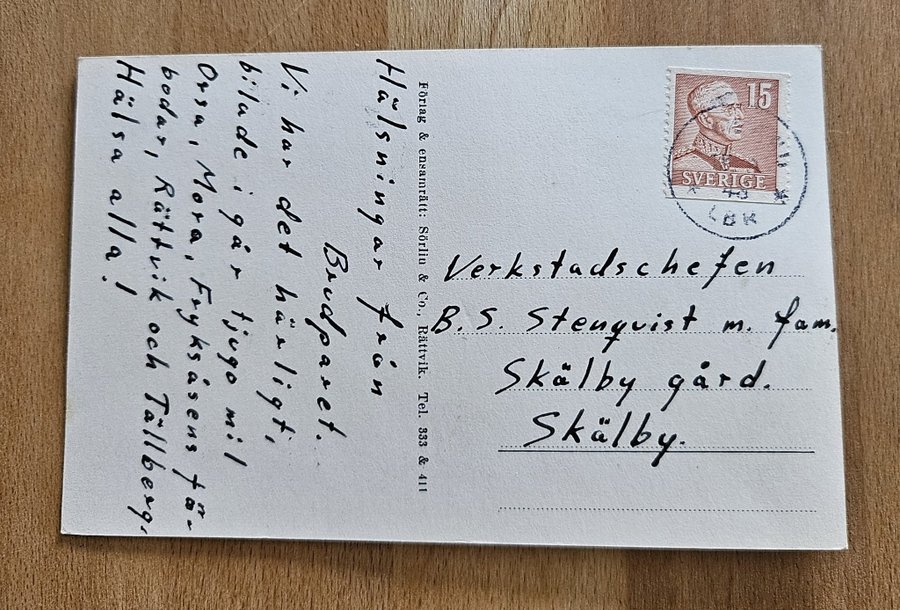 Hälsningar från
Brudparet.
Vi har det härligt,
bilade i går tjugo mil
Orsa, Mora, Fryksåsens fä-
bodar, Rättvik och Tällberg,
Hälsa alla!
Förlag & ensamrätt: Sörlin & Co., Rättvik. Tel. 333 & 411
15
SVERIGE
LBR
Verkstadschefen
B. S. Stenqvist m. fam.
Skälby gård.
Skälby.